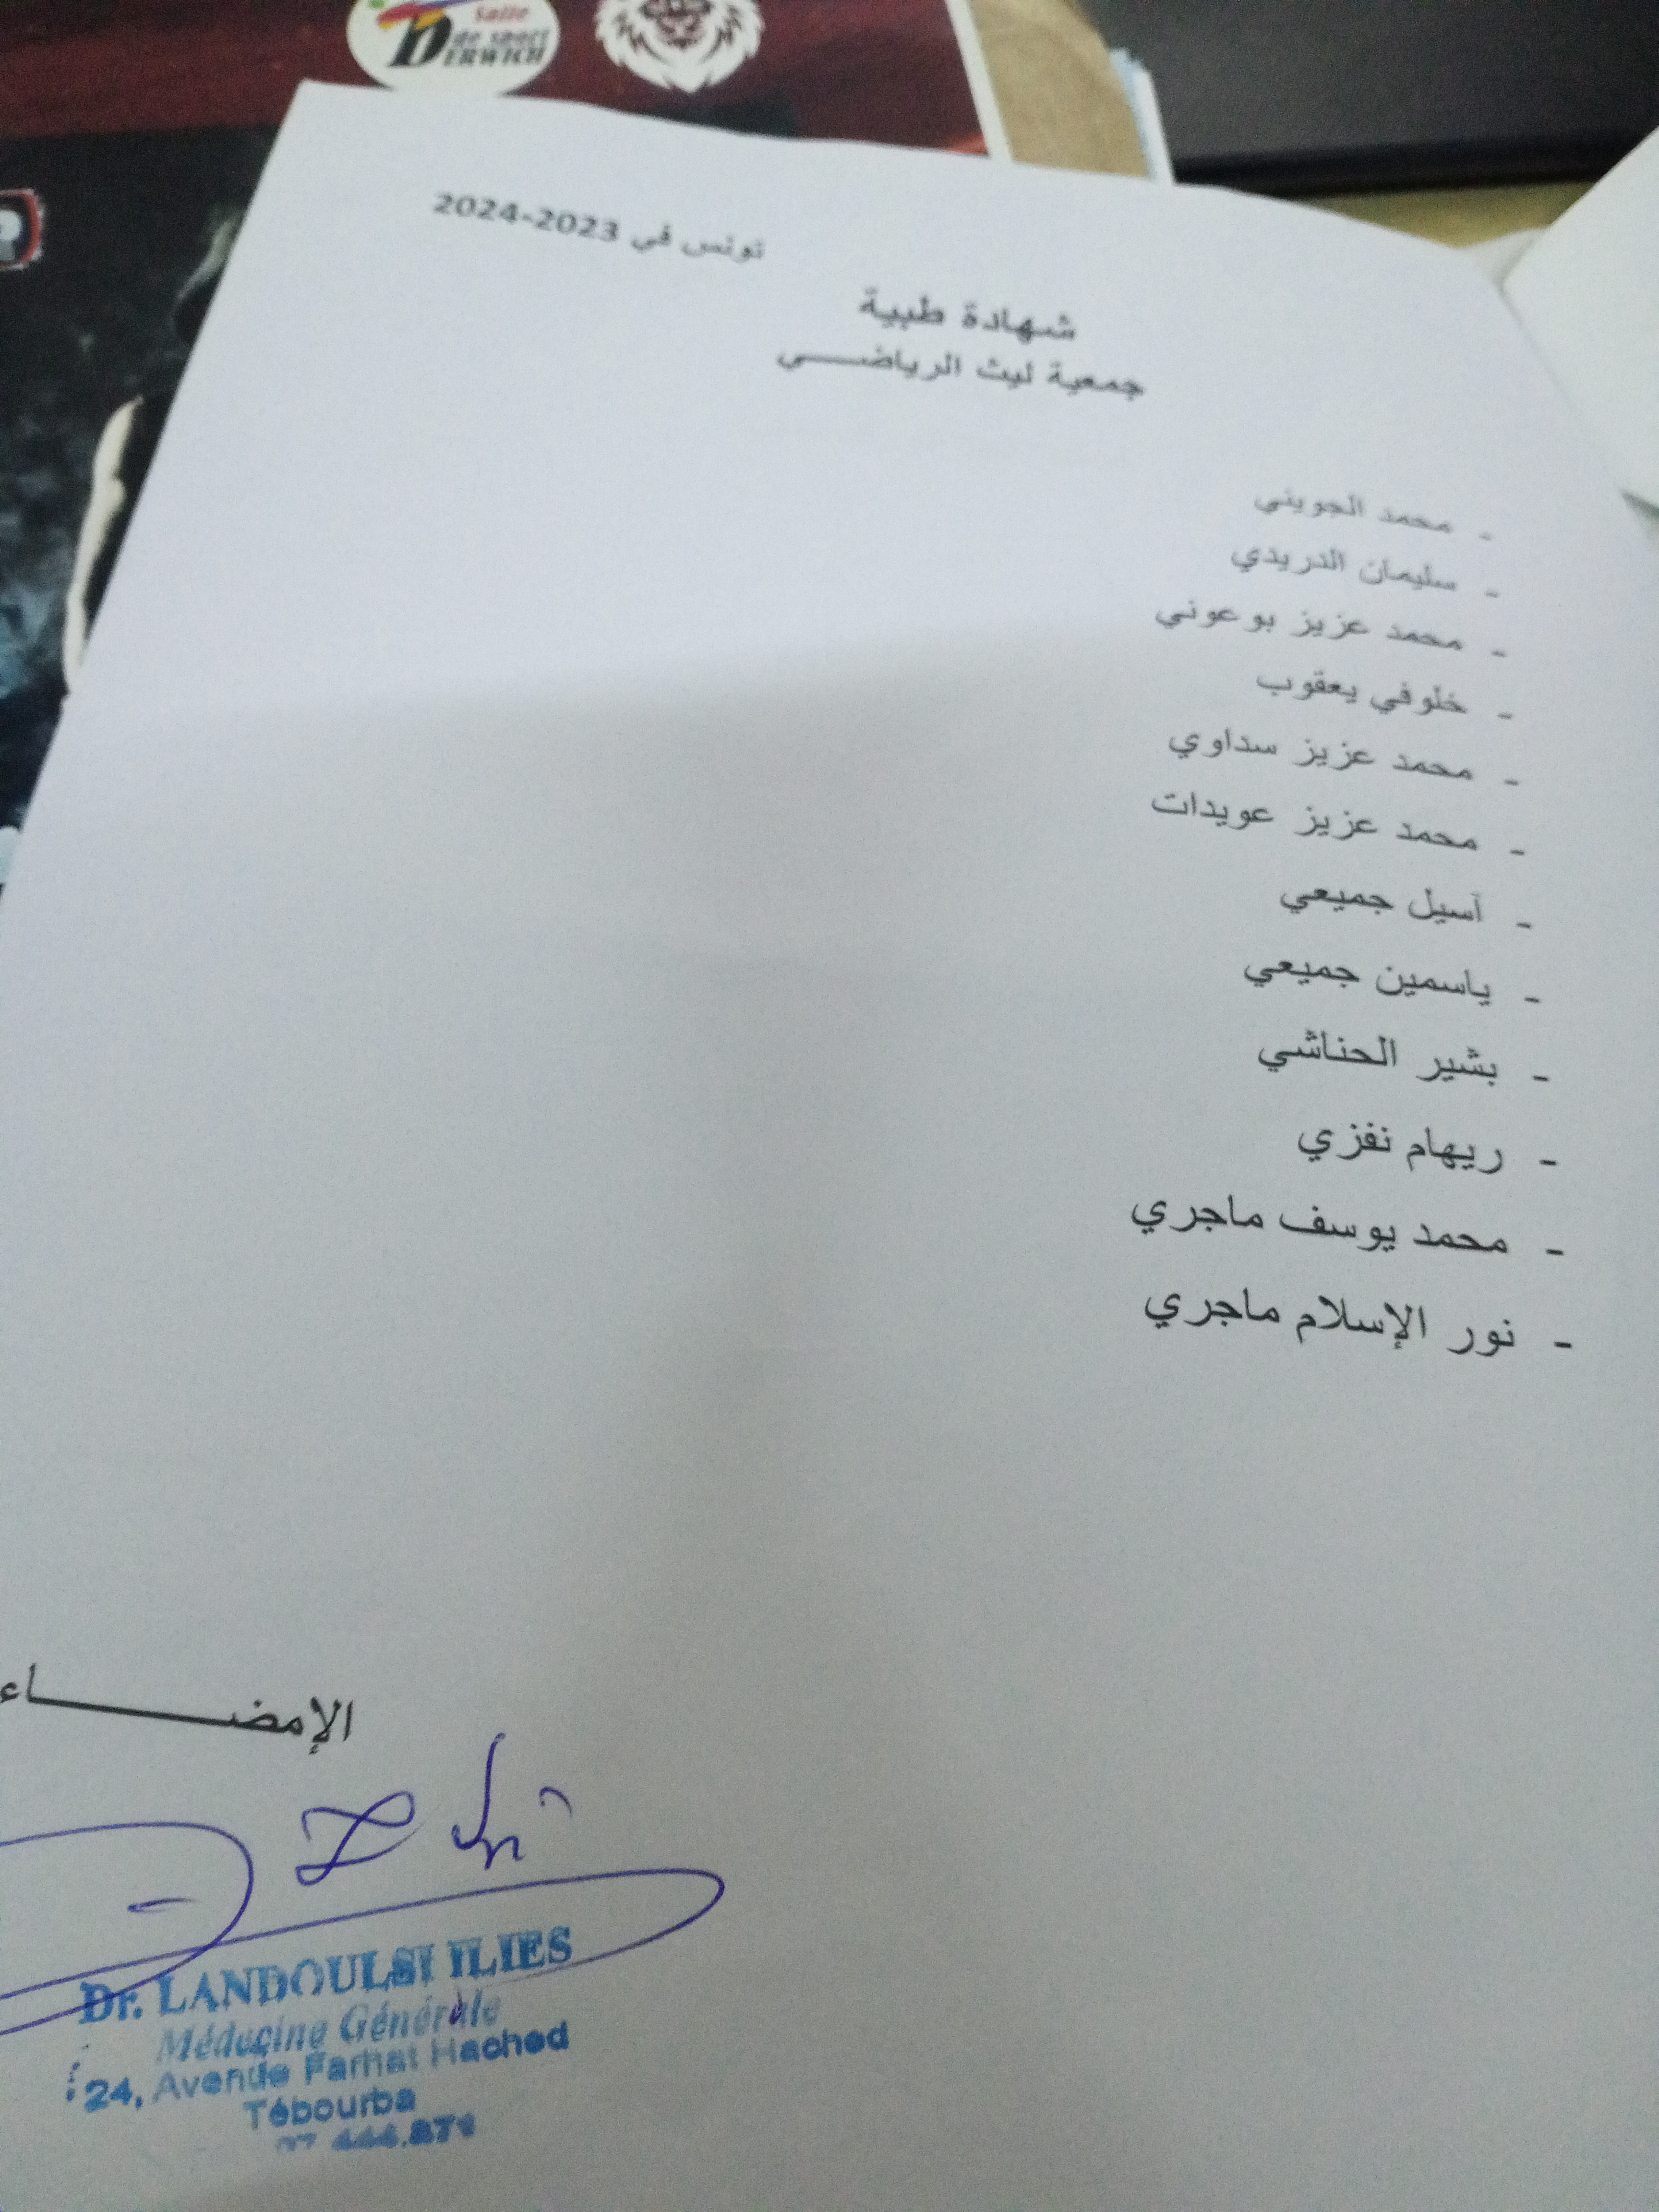 Salle
de sport
DERWICH
تونس في 2023-2024
شهادة طبية
جمعية ليث الرياضـــــي
- محمد الجويني
- سليمان الدريدي
- محمد عزيز بوعوني
- خلوفي يعقوب
- محمد عزيز سداوي
- محمد عزيز عويدات
- آسيل جميعي
- ياسمين جميعي
- بشير الحناشي
- ريهام نفزي
- محمد يوسف ماجري
- نور الإسلام ماجري
الإمضـــــــــاء
Dr. LANDOULSI ILIES
Médecine Générale
24, Avenue Farhat Hached
Tébourba